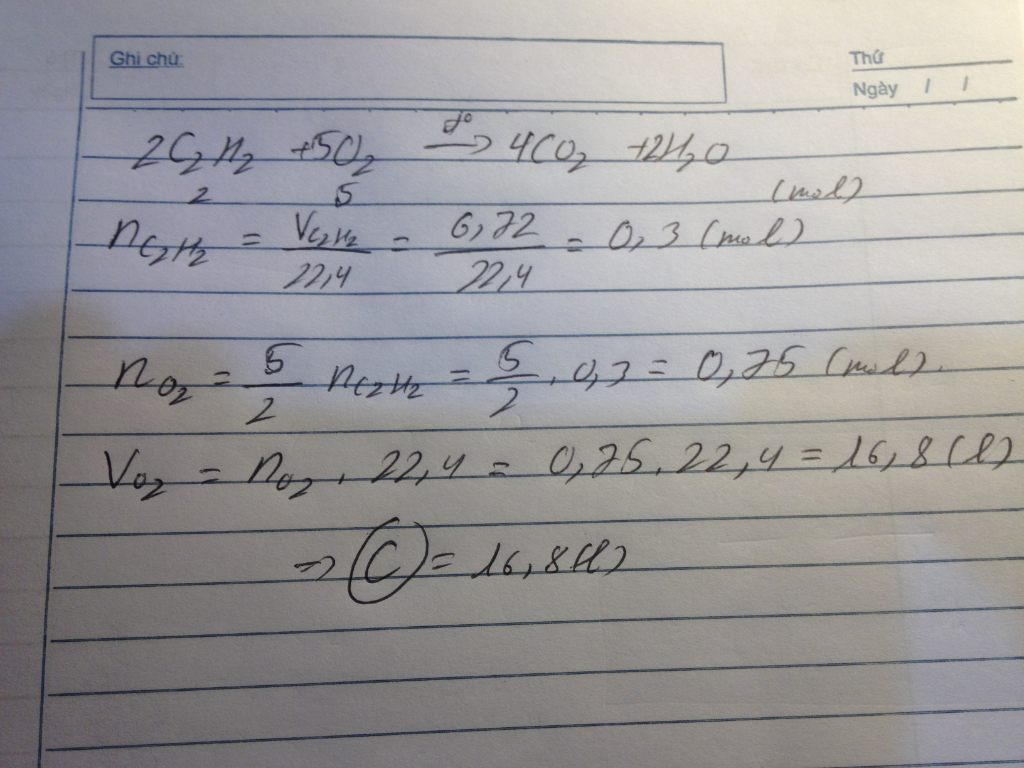 Ghi chú:
Thứ
Ngày / /
2C₂H₂ +5O₂ —t°→ 4CO₂ +2H₂O
2 5 (mol)
n_C₂H₂ = V_C₂H₂/22,4 = 6,72/22,4 = 0,3 (mol)
n_O₂ = 5/2 n_C₂H₂ = 5/2 . 0,3 = 0,75 (mol).
V_O₂ = n_O₂ . 22,4 = 0,75 . 22,4 = 16,8 (l)
=> C = 16,8 (l)